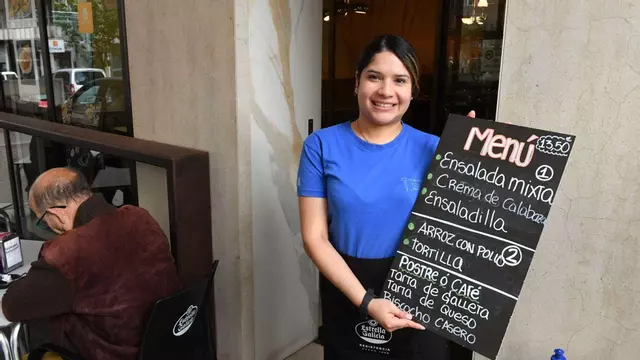 Menú
13,50
Ensalada mixta
1
Crema de Calabaza
Ensaladilla
ARROZ CON POLLO
2
TORTILLA
POSTRE O CAFÉ
Tarta de Galleta
Tarta de QUESO
Biscocho CASERO
Estrella
Galicia
Estrella
Galicia
RESISTENCIA